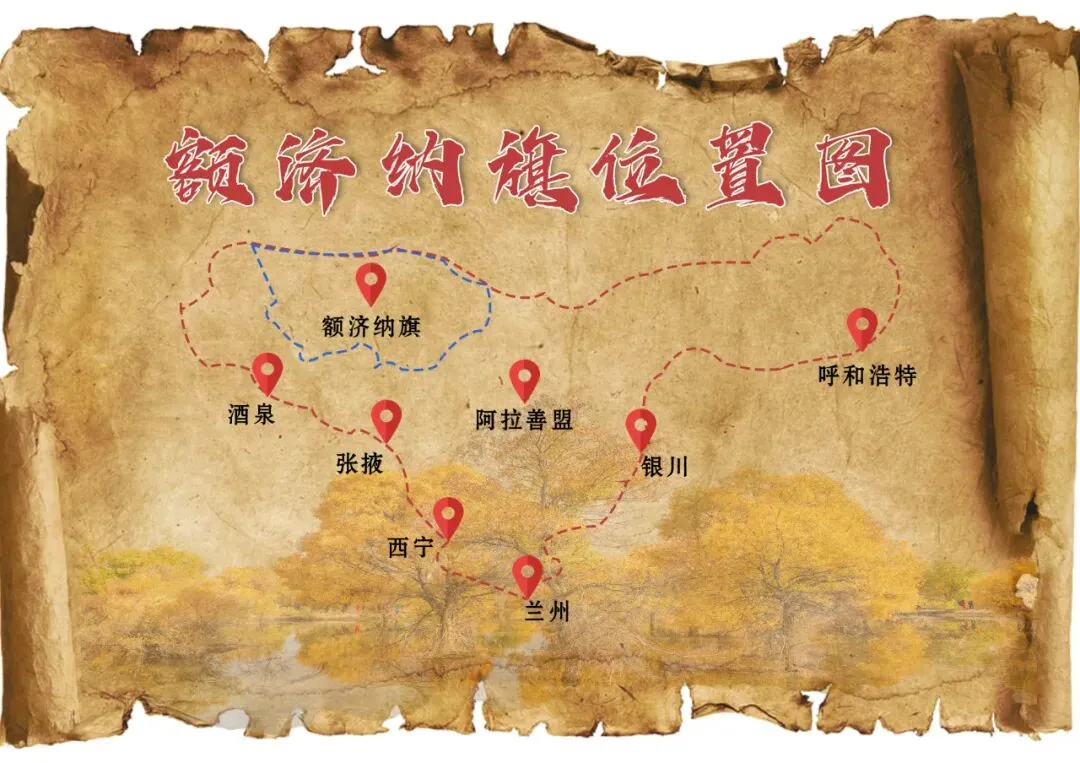 额济纳旗位置图
额济纳旗
呼和浩特
酒泉
阿拉善盟
张掖
银川
西宁
兰州